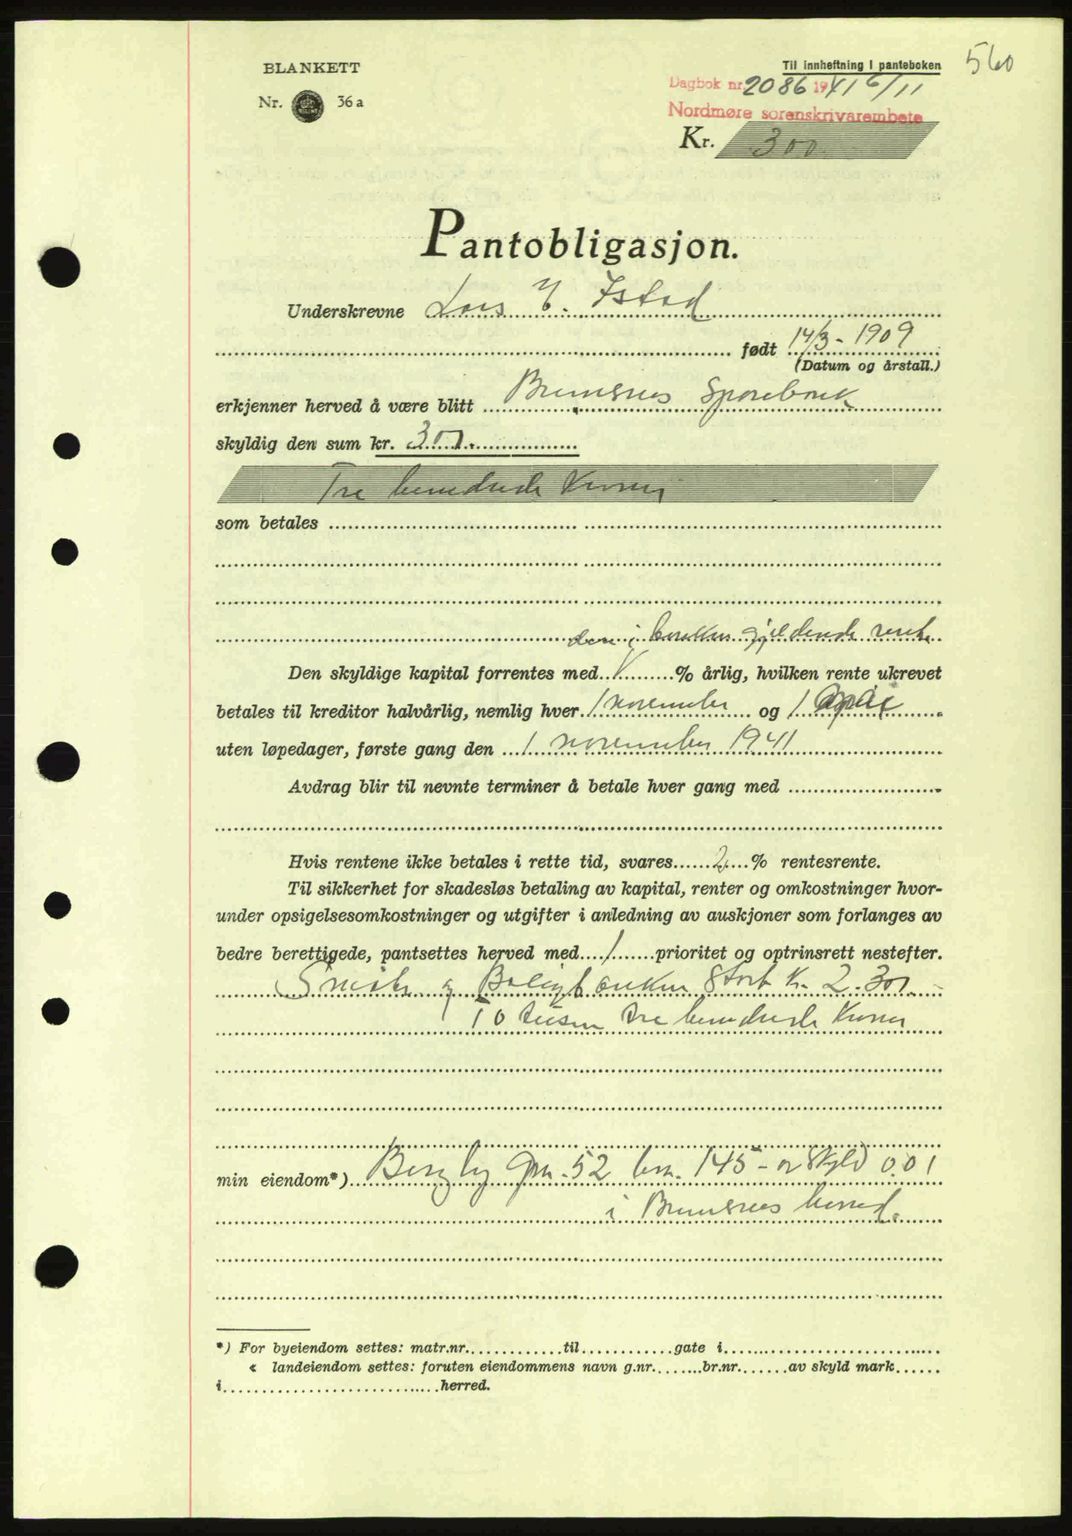 560
BLANKETT
Nr. 36 a
Til innheftning i panteboken
Dagbok nr. 2086 1941 6/11
Nordmøre sorenskrivarembete
Kr. 300.
Pantobligasjon.
Underskrevne Lars E. Istad
født 14/3 - 1909
(Datum og årstall.)
erkjenner herved å være blitt Bremsnes Sparebank
skyldig den sum kr. 300.
Tre hundrede Kroner
som betales
den i banken gjeldende rente
Den skyldige kapital forrentes med % årlig, hvilken rente ukrevet
betales til kreditor halvårlig, nemlig hver 1 november og 1 mai
uten løpedager, første gang den 1 november 1941
Avdrag blir til nevnte terminer å betale hver gang med
Hvis rentene ikke betales i rette tid, svares 2 % rentesrente.
Til sikkerhet for skadesløs betaling av kapital, renter og omkostninger hvor-
under opsigelsesomkostninger og utgifter i anledning av auskjoner som forlanges av
bedre berettigede, pantsettes herved med 1 prioritet og optrinsrett nestefter.
Småbr. og Boligbanken Stort Kr. 2.300. -
To tusen tre hundrede Kroner
min eiendom*) Bergly gnr. 52 bnr. 145 - av Skyld 0.01
i Bremsnes herred.
*) For byeiendom settes: matr.nr. til gate i
« landeiendom settes: foruten eiendommens navn g.nr. br.nr. av skyld mark
i herred.